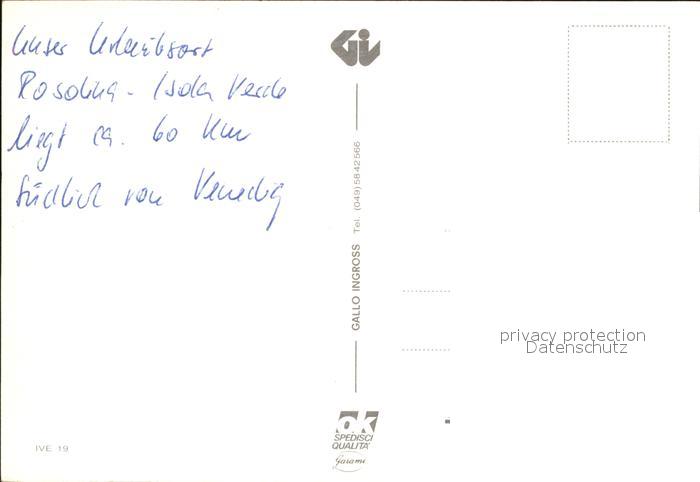 Unser Urlaubsort
Rosolina - Isola Verde
liegt ca. 60 Km
südlich von Venedig
Gi
GALLO INGROSS Tel. (049) 5842566
privacy protection
Datenschutz
ok
SPEDISCI
QUALITA'
Garami
IVE 19